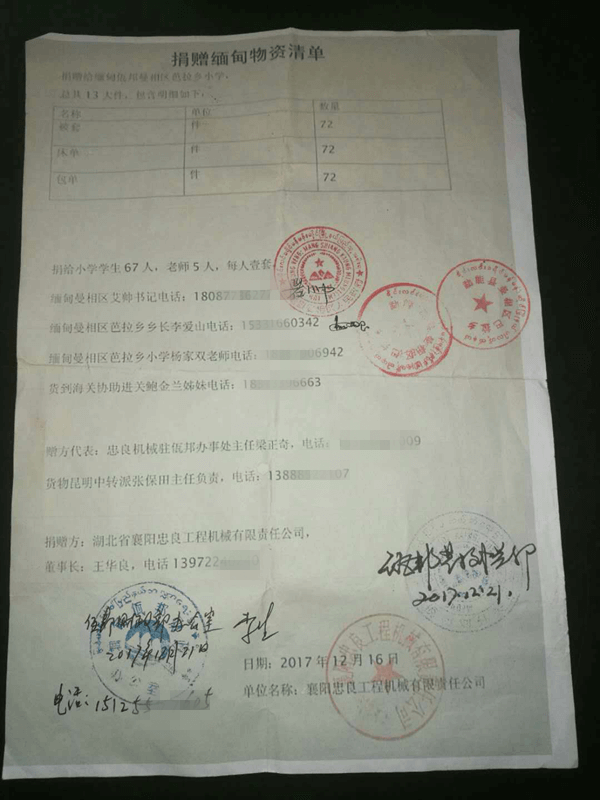 捐赠缅甸物资清单
捐赠给缅甸佤邦曼相区芭拉乡小学。
总共13大件，包含明细如下：
名称 单位 数量
被套 件 72
床单 件 72
包单 件 72
捐给小学学生67人，老师5人，每人壹套
缅甸曼相区艾帅书记电话：1808
缅甸曼相区芭拉乡乡长李爱山电话：15 660342
缅甸曼相区芭拉乡小学杨家双老师电话： 06942
货到海关协助进关鲍金兰姊妹电话：18 663
赠方代表：忠良机械驻佤邦办事处主任梁正奇，电话： 909
货物昆明中转派张保田主任负责，电话：13888 07
捐赠方：湖北省襄阳忠良工程机械有限责任公司，
董事长：王华良，电话13972
2017.12.21.
办公室
2017年12月21日
电话：15125 65
日期：2017年12月16日
单位名称：襄阳忠良工程机械有限责任公司